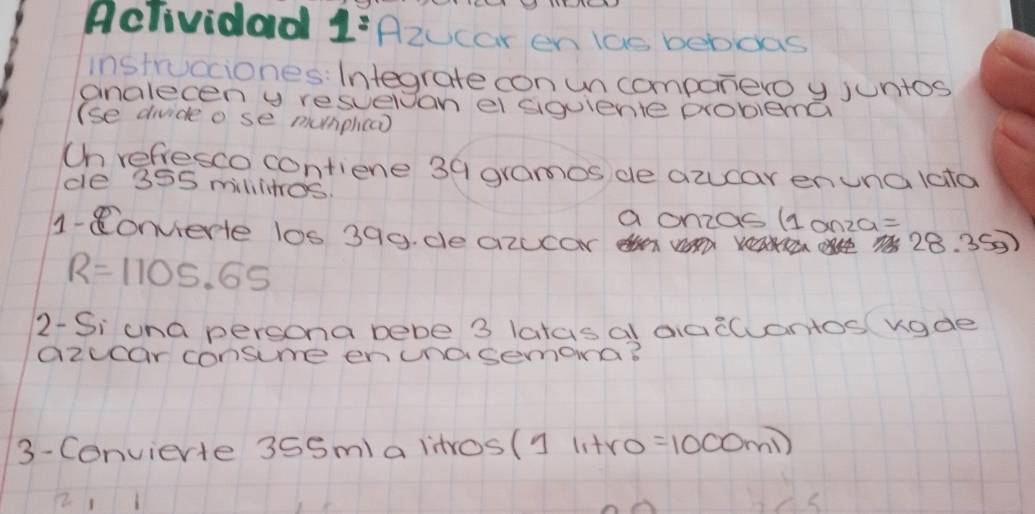 Actividad 1: Azucar en las bebidas
Instrucciones: Integrate con un compañero y juntos
analecen y resuelvan el siguiente problema
(se divide o se multiplica)
Un refresco contiene 39 gramos de azucar en una lata
de 355 mililitros.
1-Convierte los 39g. de azucar a onzas (1 onza= 28.35g)
R=1105.65
2-Si una persona bebe 3 latas al dia ¿Cuantos kg de
azucar consume en una semana?
3-Convierte 355ml a litros (1 litro=1000ml)